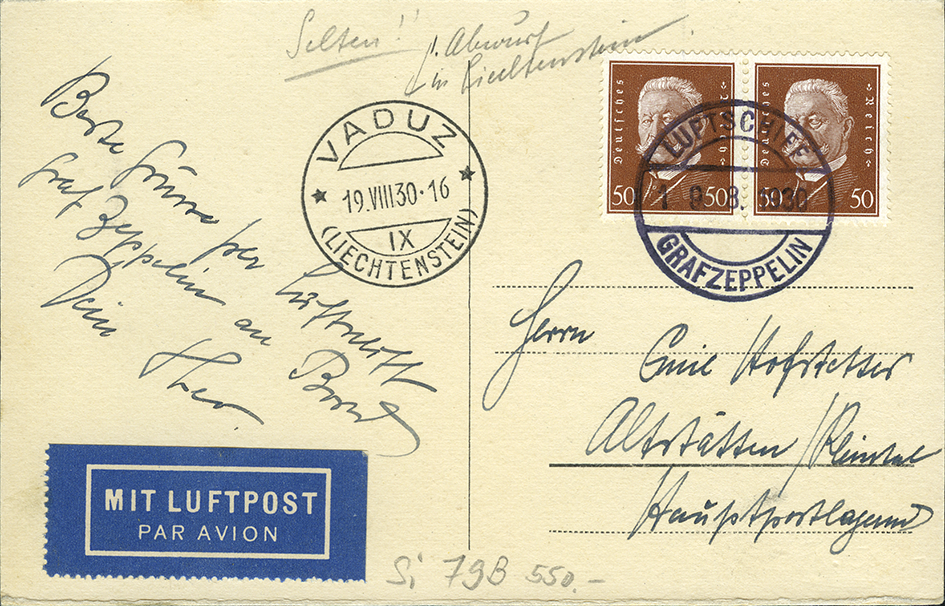 Selten!!
1. Abwurf
in Liechtenstein
Beste Grüsse per Luftschiff
Graf Zeppelin an Bord
Dein Theo
VADUZ
19.VIII30-16
IX
(LIECHTENSTEIN)
Deutsches Reich
50 50
Deutsches Reich
50 50
LUFTSCHIFF
1 9. 8. 1930
GRAF ZEPPELIN
Herrn
Emil Hofstetter
Altstätten/Rheintal
Hauptpostlagernd
MIT LUFTPOST
PAR AVION
Si 79B 550.-